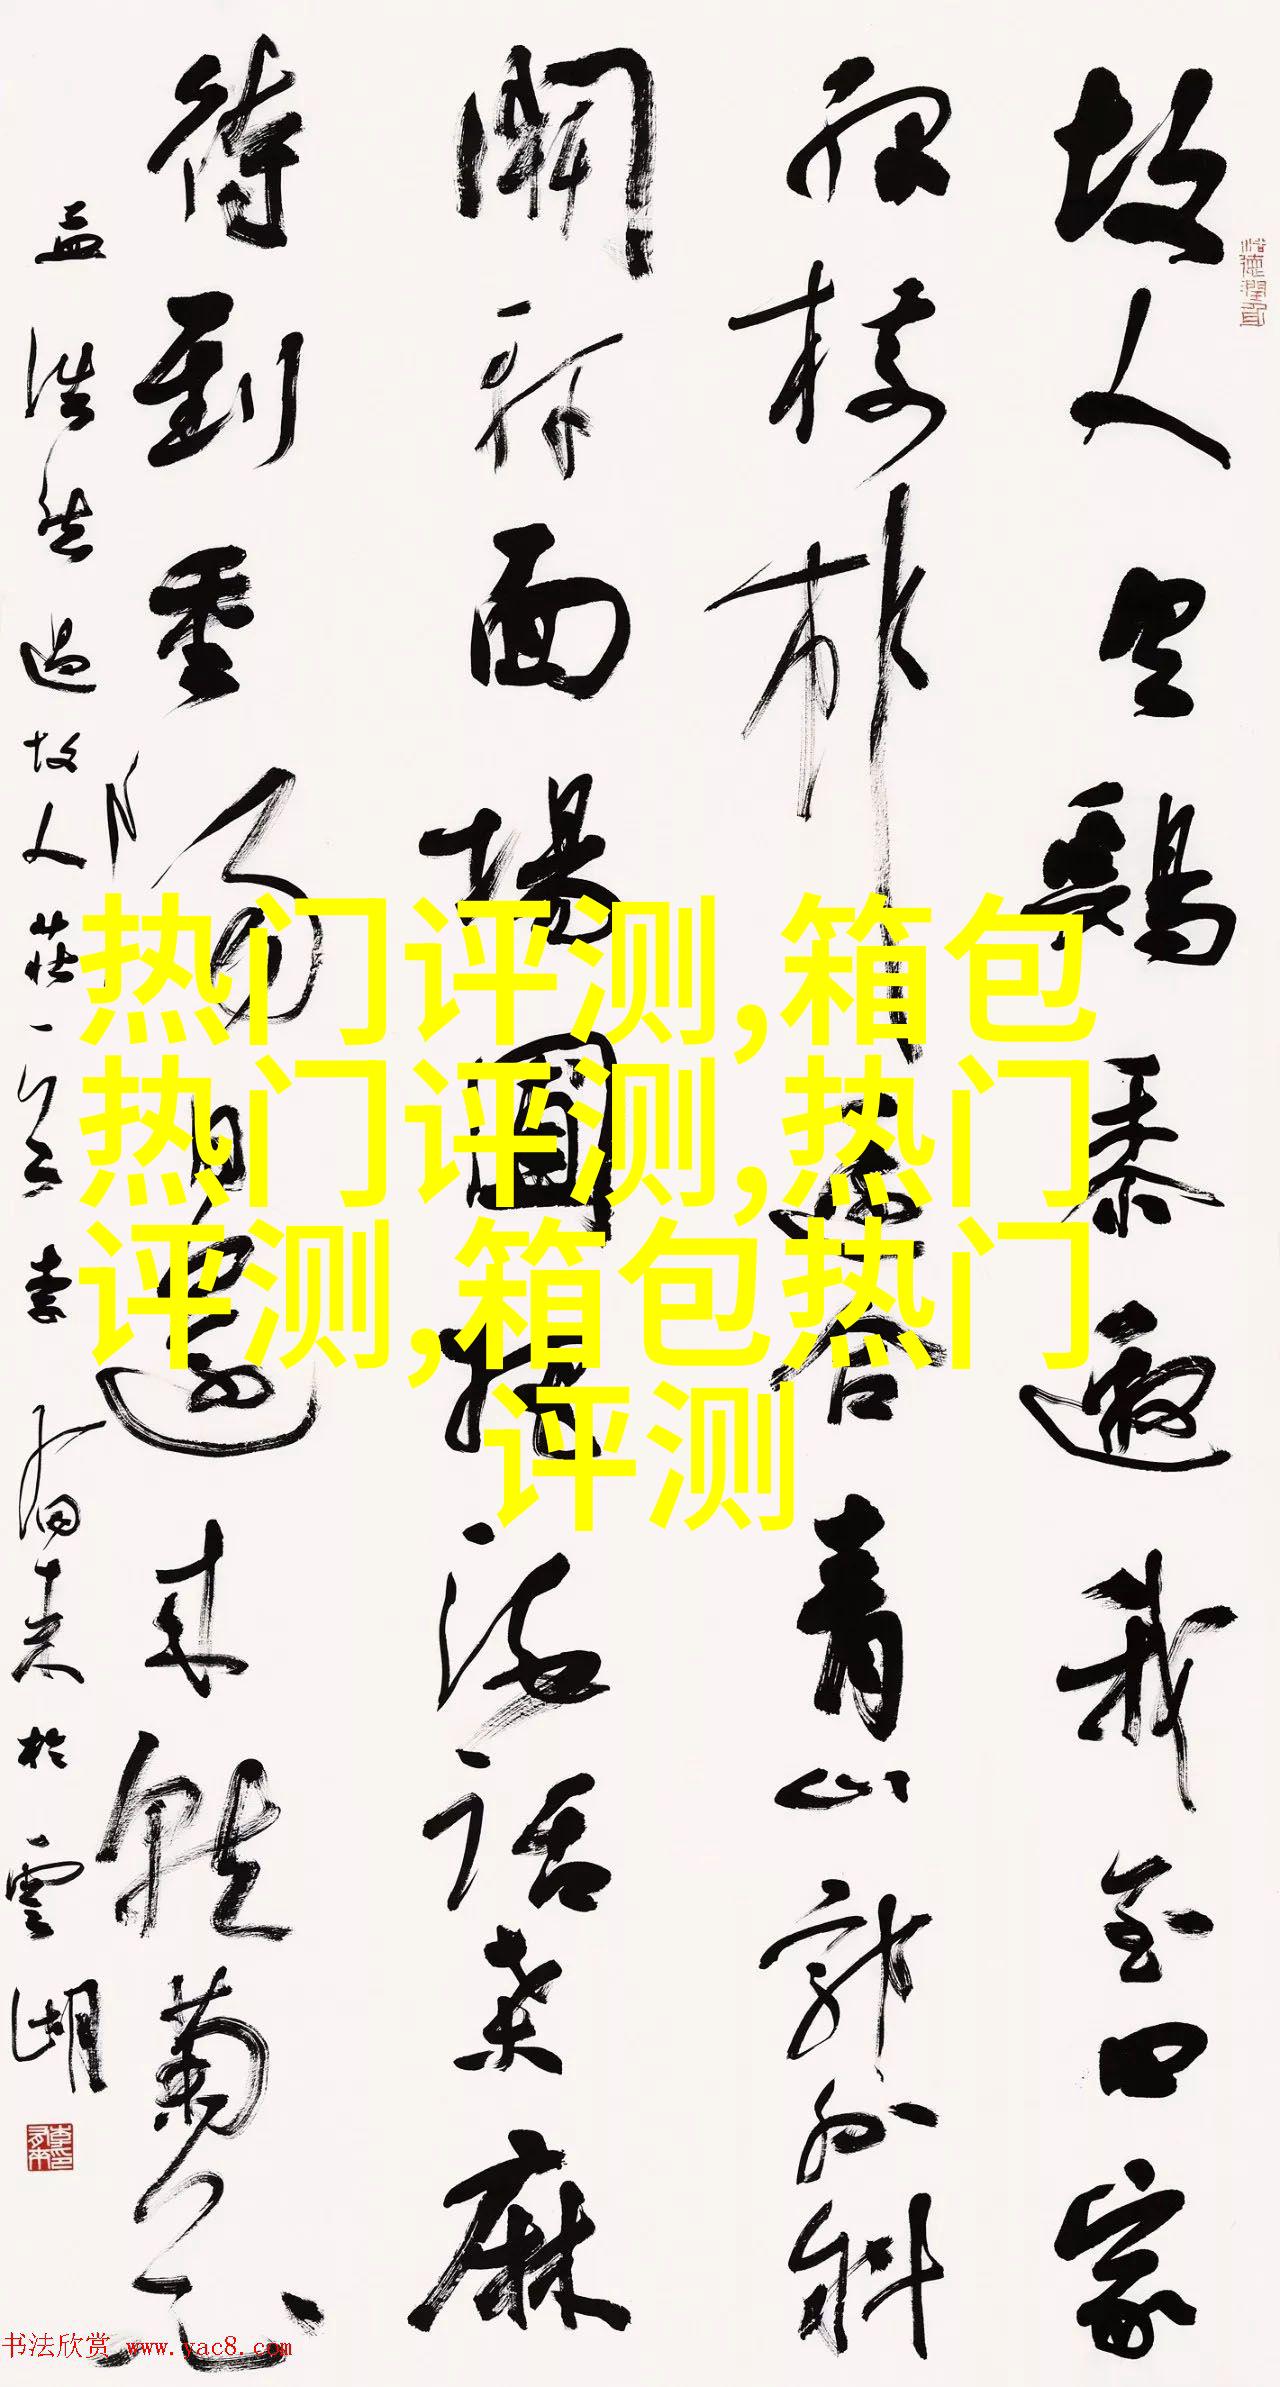 故人具鷄黍邀我至田家
緑樹村邊合青山郭外斜
開軒面場圃把酒話桑麻
待到重陽日還来就菊花
孟浩然過故人莊一首 李有来於雲湖
热门评测,箱包
热门评测,热门
评测,箱包热门
评测
书法欣赏 www.yac8.com